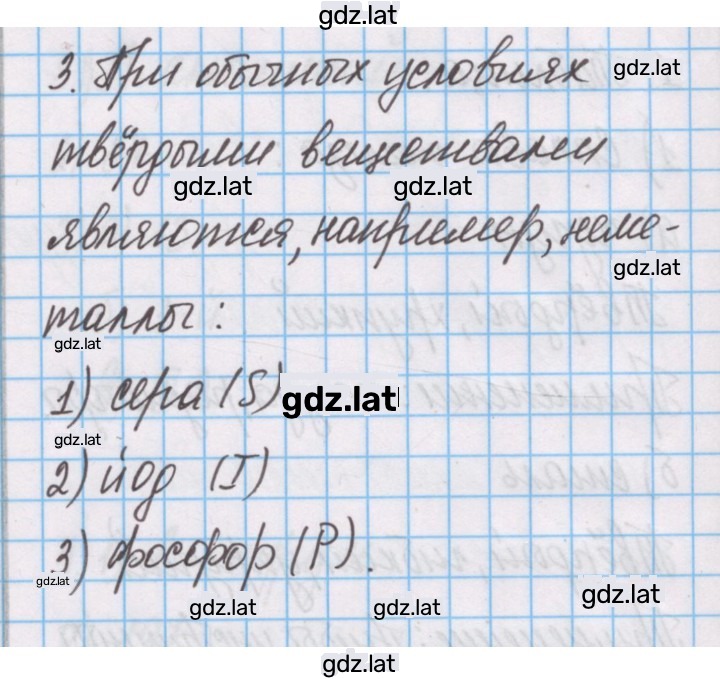 gdz.lat
3. При обычных условиях
gdz.lat
твёрдыми веществами
gdz.lat gdz.lat
являются, например, неме-
gdz.lat
таллы:
gdz.lat
1) сера (S)
gdz.lat
gdz.lat
2) йод (I)
3) фосфор (P).
gdz.lat
gdz.lat gdz.lat gdz.lat
gdz.lat